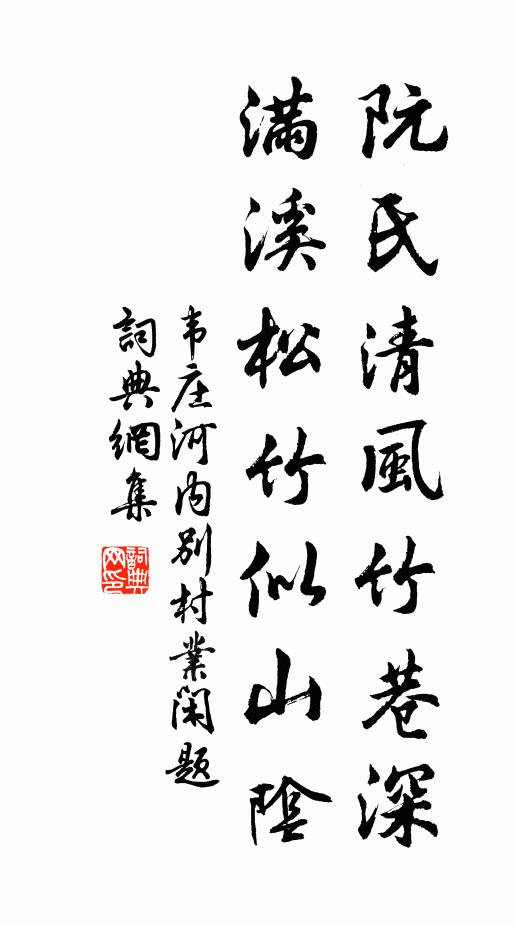 阮氏清風竹巷深
滿溪松竹似山陰
韦庄河内别村業闲题
詞典網集
詞典網印